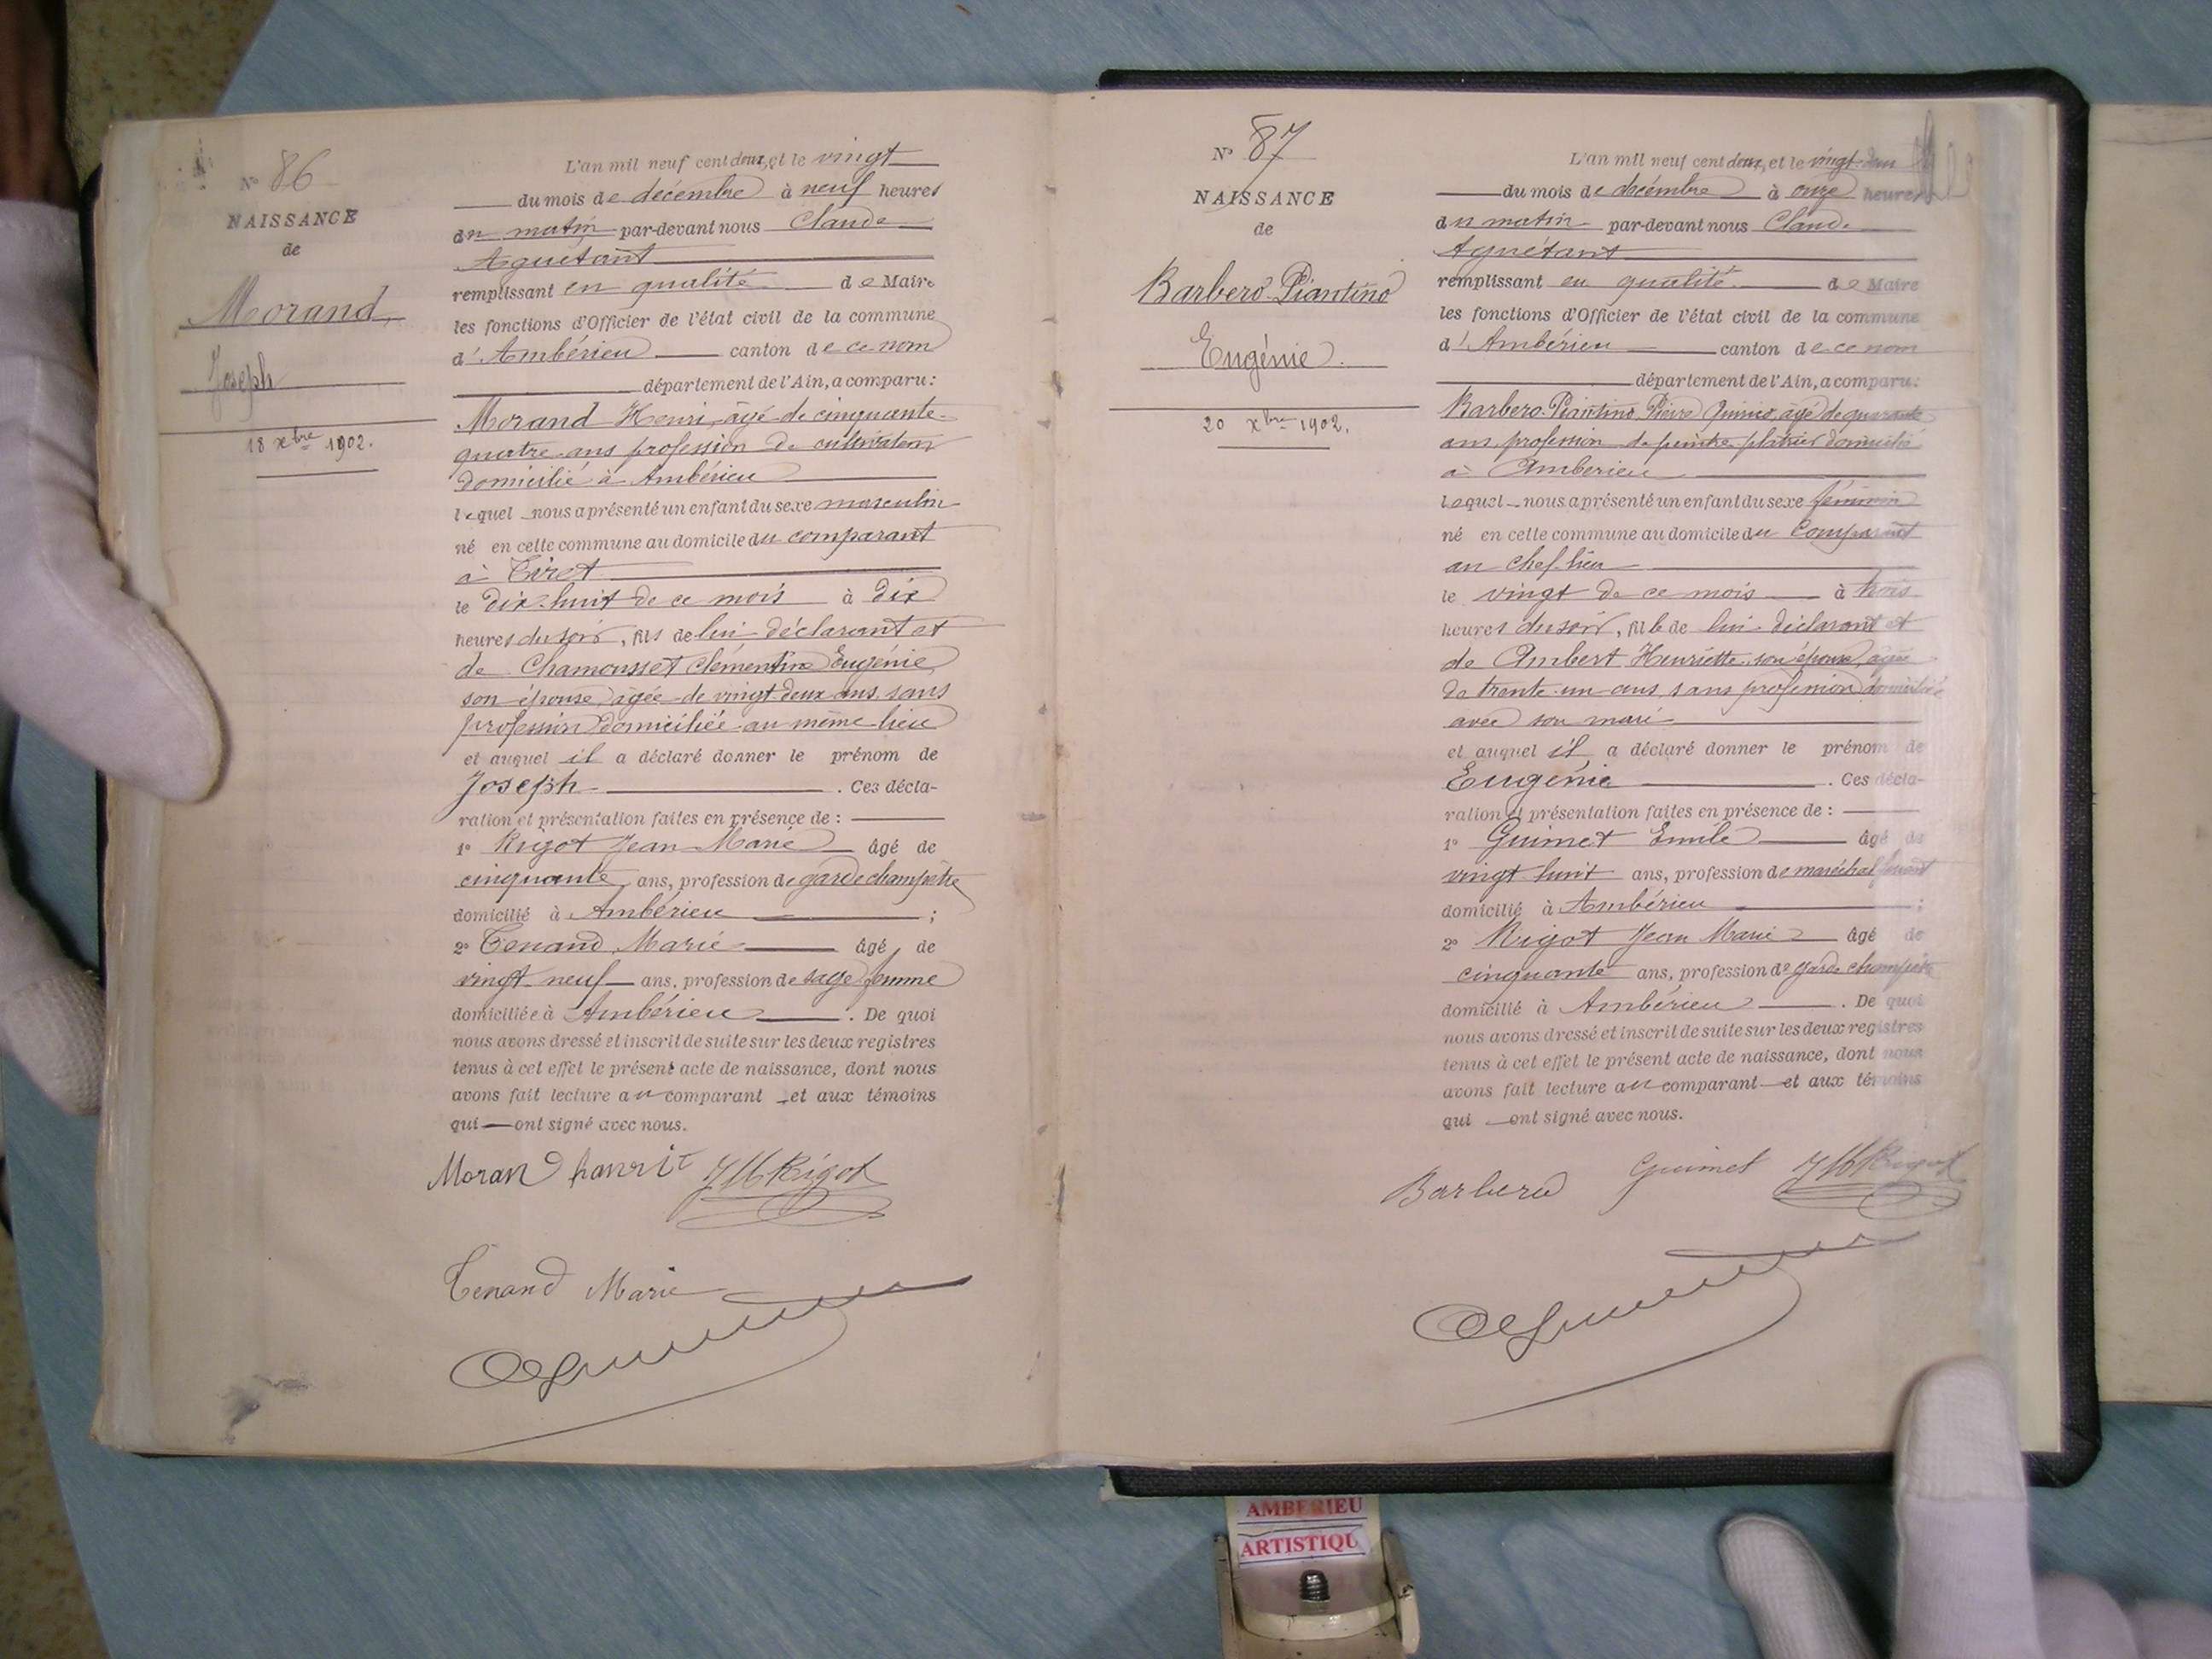 N° 86
NAISSANCE
de
Morand
Joseph
18 xbre 1902.
L'an mil neuf cent deux, et le vingt
du mois de décembre à neuf heures
du matin par-devant nous Claude
Aguétant
remplissant en qualité de Maire
les fonctions d'Officier de l'état civil de la commune
d'Ambérieu canton de ce nom
département de l'Ain, a comparu :
Morand Henri, âgé de cinquante-
quatre ans profession de cultivateur
domicilié à Ambérieu
lequel nous a présenté un enfant du sexe masculin
né en cette commune au domicile du comparant
à Tiret
le dix-huit de ce mois à dix
heures du soir, fils de lui déclarant et
de Chamousset Clémentine Eugénie
son épouse âgée de vingt-deux ans, sans
profession domiciliée au même lieu
et auquel il a déclaré donner le prénom de
Joseph . Ces décla-
ration et présentation faites en présence de :
1° Rigot Jean Marie âgé de
cinquante ans, profession de garde champêtre
domicilié à Ambérieu ;
2° Tenand Marie âgé, de
vingt neuf ans, profession de sage femme
domiciliée à Ambérieu . De quoi
nous avons dressé et inscrit de suite sur les deux registres
tenus à cet effet le présent acte de naissance, dont nous
avons fait lecture au comparant et aux témoins
qui ont signé avec nous.
Moran hanrit JM Rigot
Tenand Marie
N° 87
NAISSANCE
de
Barbero-Piantino
Eugénie
20 xbre 1902.
L'an mil neuf cent deux, et le vingt-deux
du mois de décembre à onze heures
du matin par-devant nous Claude
Aguétant
remplissant en qualité de Maire
les fonctions d'Officier de l'état civil de la commune
d'Ambérieu canton de ce nom
département de l'Ain, a comparu :
Barbero-Piantino Pierre âgé de quarante
ans, profession de peintre-plâtrier domicilié
à Amberieu
lequel nous a présenté un enfant du sexe féminin
né en cette commune au domicile du Comparant
au chef-lieu
le vingt de ce mois à trois
heures du soir, fille de lui déclarant et
de Ambert Henriette son épouse, âgée
de trente-un ans, sans profession domiciliée
avec son mari
et auquel il a déclaré donner le prénom de
Eugénie . Ces décla-
ration et présentation faites en présence de :
1° Guimet Emile âgé de
vingt huit ans, profession de maréchal ferrant
domicilié à Ambérieu ;
2° Rigot Jean Marie âgé de
cinquante ans, profession de garde champêtre
domicilié à Ambérieu . De quoi
nous avons dressé et inscrit de suite sur les deux registres
tenus à cet effet le présent acte de naissance, dont nous
avons fait lecture au comparant et aux témoins
qui ont signé avec nous.
Barbero Guimet JM Rigot
AMBERIEU
ARTISTIQU